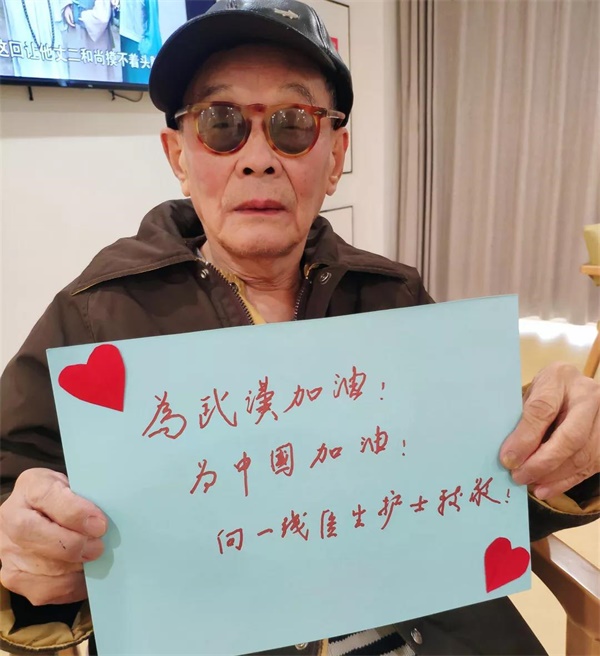 这回让他丈二和尚摸不着头
為武漢加油！
为中國加油！
向一线医生护士致敬！